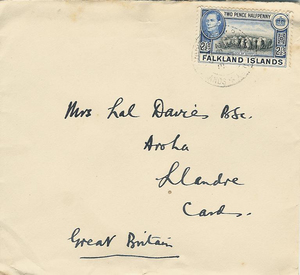 TWO PENCE HALFPENNY
2½ 2½
FALKLAND ISLANDS
Mrs Lal Davies B.Sc.
Aroha
Llandre
Cards.
Great Britain